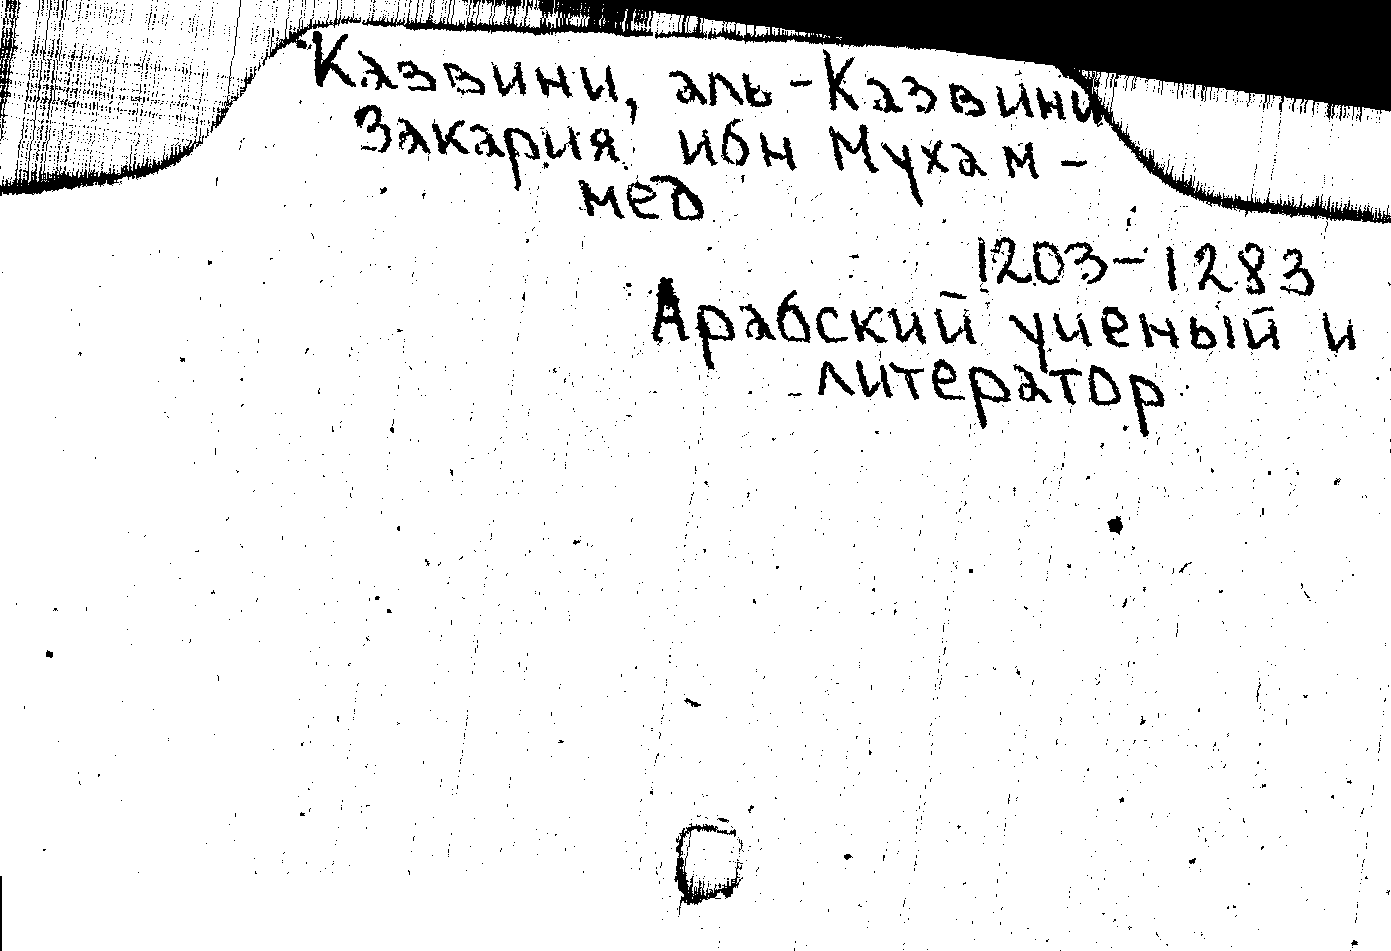 Казвини, аль-Казвини
Закария ибн Мухам-
мед
1203-1283
Арабский ученый и
литератор